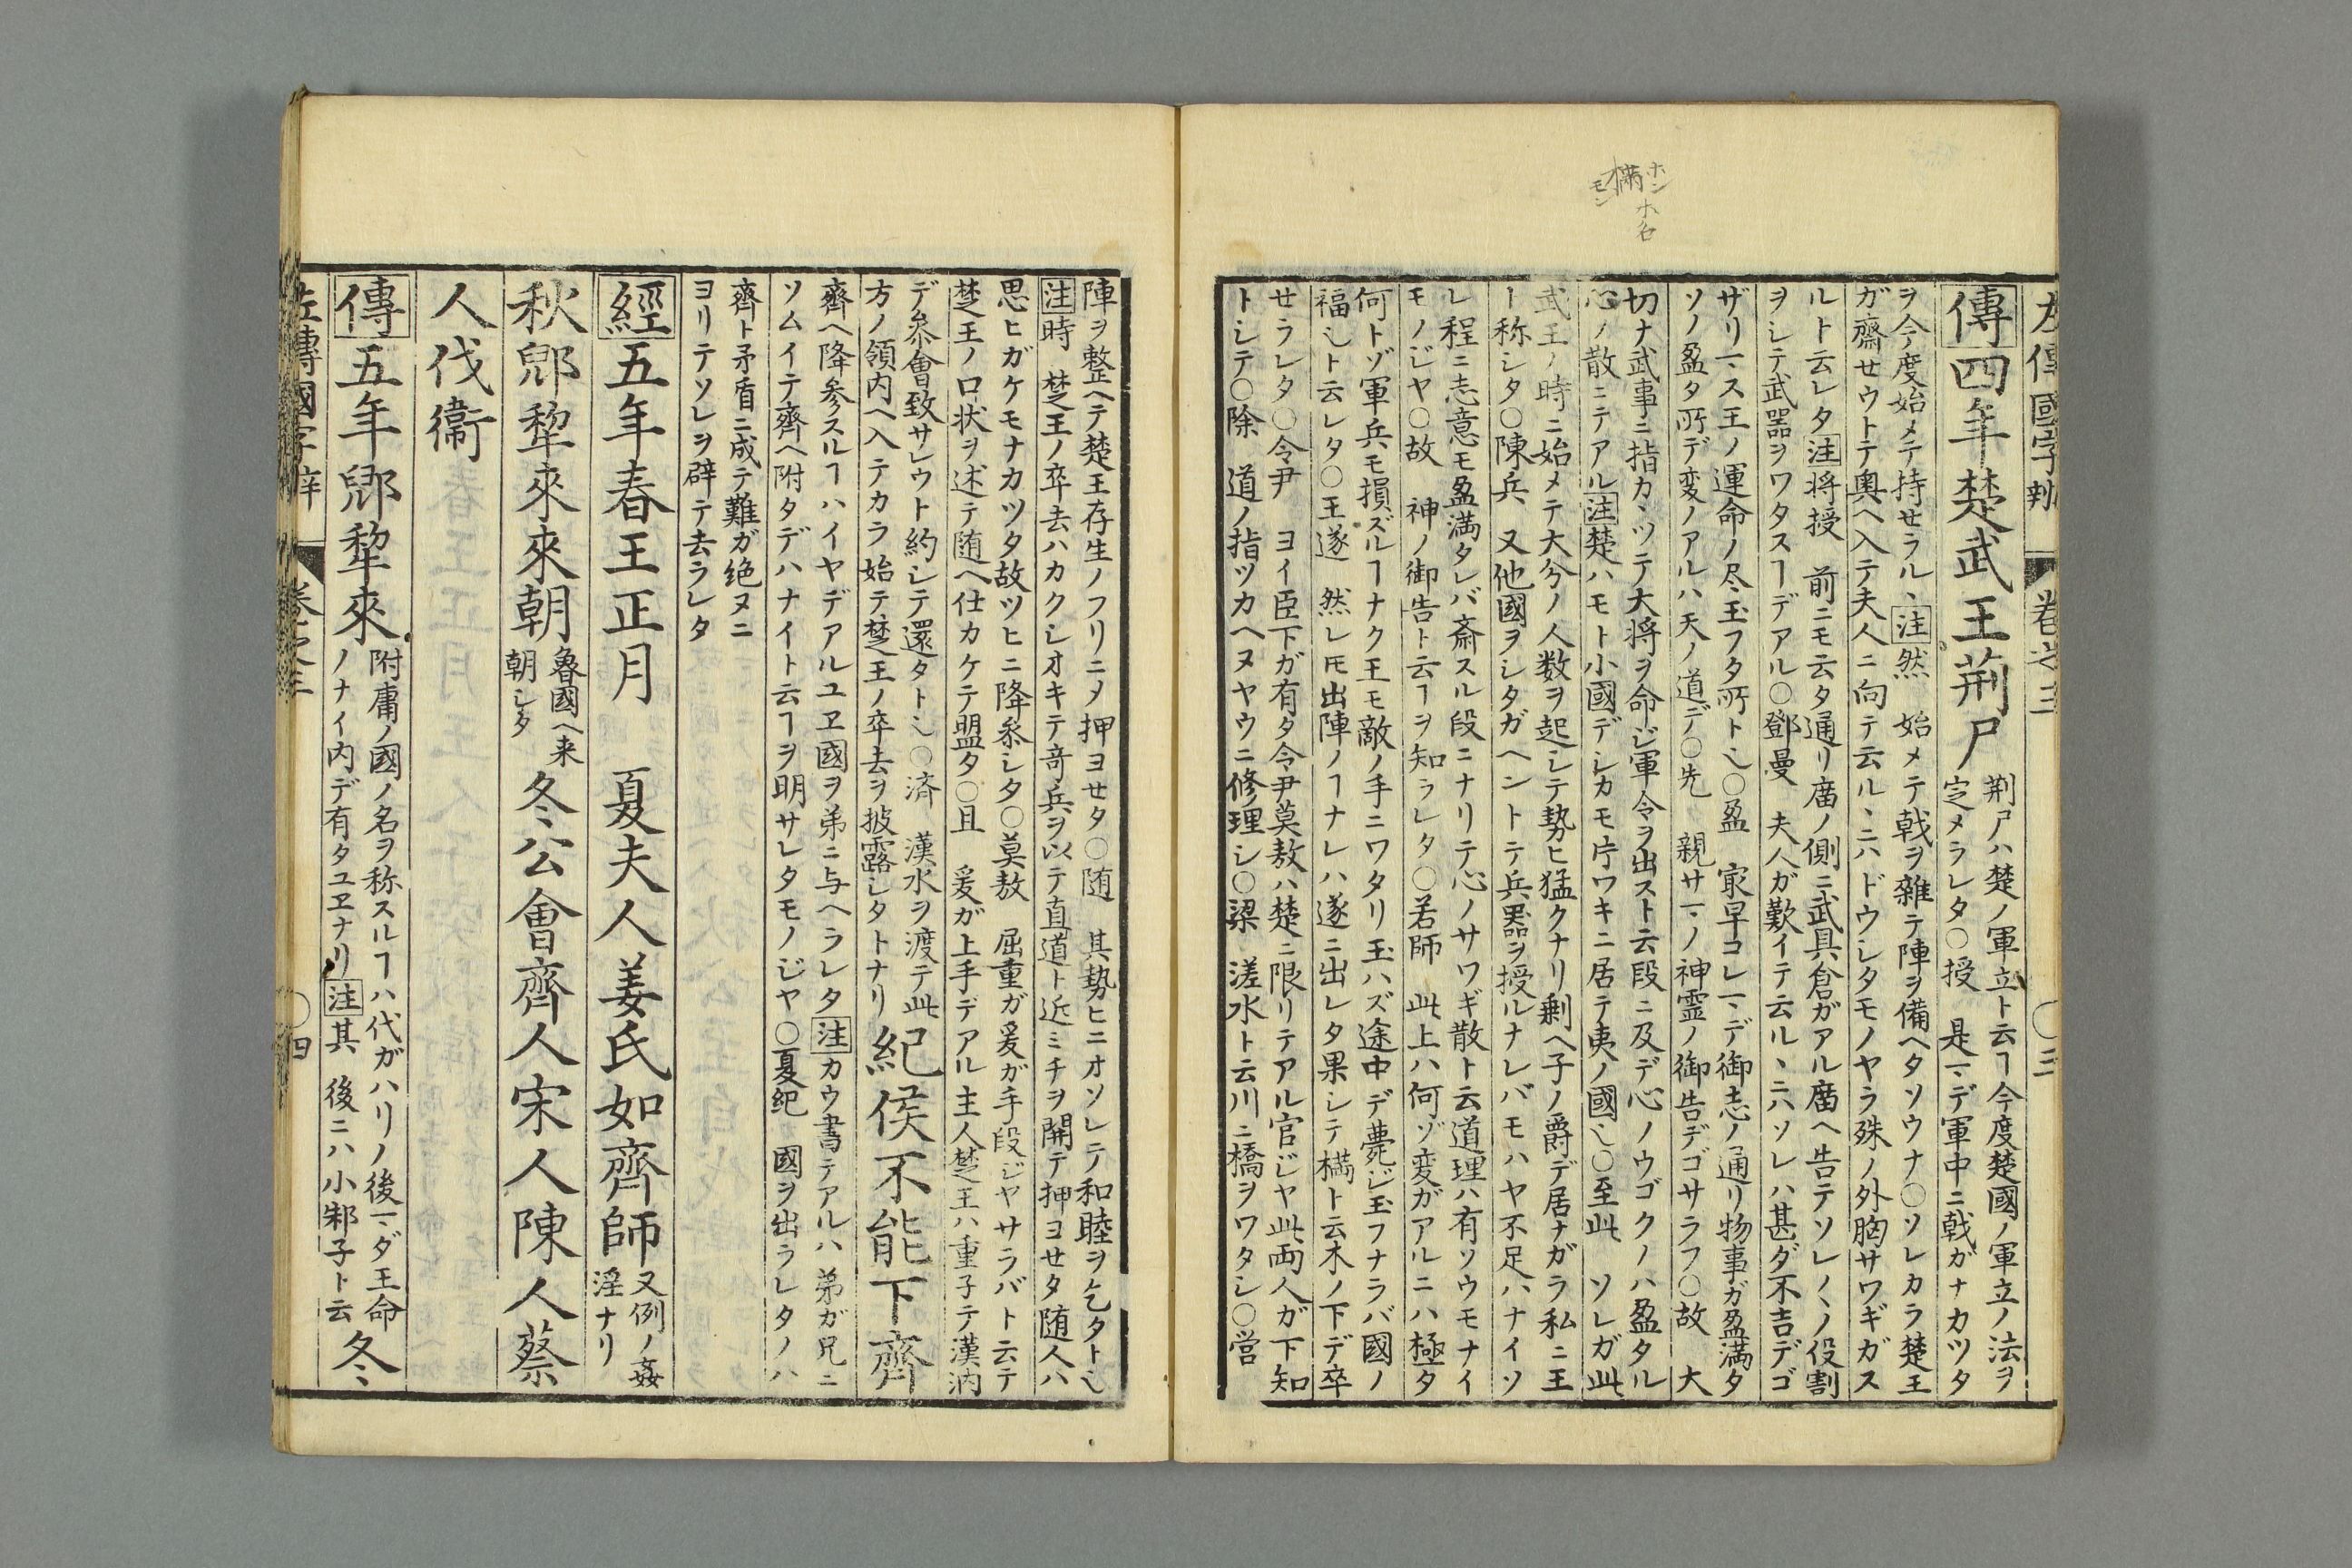 左傳國字辯 卷之三 ○三
傳四年楚武王荊尸
荊尸ハ楚ノ軍立ト云ヿ今度楚國ノ軍立ノ法ヲ
定メラレタ○授 是マデ軍中ニ戟ガナカツタ
ヲ今度始メテ持セラル、注然 始メテ戟ヲ雜テ陣ヲ備ヘタソウナ○ソレカラ楚王
ガ齋セウトテ奥ヘ入テ夫人ニ向テ云ル、ニハドウシタモノヤラ殊ノ外胸サワギガス
ルト云レタ注将授 前ニモ云タ通リ庿ノ側ニ武具倉ガアル庿ヘ告テソレ〳〵ノ役割
ヲシテ武器ヲワタスヿデアル○鄧曼 夫人ガ歎イテ云ル、ニハソレハ甚ダ不吉デゴ
ザリマス王ノ運命ノ尽玉フタ所ト乀○盈 㝡早コレマデ御志ノ通リ物事ガ盈満タ
ソノ盈タ所デ変ノアルハ天ノ道デ○先 親サマノ神霊ノ御告デゴサラフ○故 大
切ナ武事ニ指カヽツテ大将ヲ命ジ軍令ヲ出スト云段ニ及デ心ノウゴクノハ盈タル
心ノ散ニテアル注楚ハモト小國デシカモ片ワキニ居テ夷ノ國乀○至此 ソレガ此
武王ノ時ニ始メテ大分ノ人数ヲ起シテ勢ヒ猛クナリ剰ヘ子ノ爵デ居ナガラ私ニ王
ト称シタ○陳兵 又他國ヲシタガヘントテ兵噐ヲ授ルナレバモハヤ不足ハナイソ
レ程ニ志意モ盈満タレバ斎スル段ニナリテ心ノサワギ散ト云道理ハ有ソウモナイ
モノジヤ○故 神ノ御告ト云ヿヲ知ラレタ○若師 此上ハ何ゾ変ガアルニハ極タ
何トゾ軍兵モ損ズルヿナク王モ敵ノ手ニワタリ玉ハズ途中デ薨ジ玉フナラバ國ノ
福乀ト云レタ○王遂 然レ𪜈出陣ノヿナレハ遂ニ出レタ果シテ樠ト云木ノ下デ卒
せラレタ○令尹 ヨイ臣下ガ有タ令尹莫敖ハ楚ニ限リテアル官ジヤ此両人ガ下知
トシテ○除 道ノ指ツカヘヌヤウニ修理シ○梁 溠水ト云川ニ橋ヲワタシ○営
ホン
樠
モン
木名
陣ヲ整ヘテ楚王存生ノフリニメ押ヨセタ○随 其勢ヒニオソレテ和睦ヲ乞タト乀
注時 楚王ノ卒去ハカクシオキテ竒兵ヲ以テ直道ト近ミチヲ開テ押ヨセタ随人ハ
思ヒガケモナカツタ故ツヒニ降叅シタ○莫敖 屈重ガ爰ガ手段ジヤサラバト云テ
楚王ノ口状ヲ述テ随ヘ仕カケテ盟タ○且 爰ガ上手デアル主人楚王ハ重子テ漢汭
デ叅會致サレウト約シテ還タト乀○済 漢水ヲ渡テ此
方ノ領内ヘ入テカラ始テ楚王ノ卒去ヲ披露シタトナリ
紀侯不能下齊
齊ヘ降参スルヿハイヤデアルユヱ國ヲ弟ニ与ヘラレタ注カウ書テアルハ弟ガ兄ニ
ソムイテ齊ヘ附タデハナイト云ヿヲ明サレタモノジヤ○夏紀 國ヲ出ラレタノハ
齊ト矛盾ニ成テ難ガ絶ヌニ
ヨリテソレヲ辟テ去ラレタ
經五年春王正月 夏夫人姜氏如齊師
又例ノ姦
淫ナリ
秋郳犂來來朝
魯國ヘ来
朝シタ
冬公會齊人宋人陳人蔡
人伐衞
傳五年郳犂來
附庸ノ國ノ名ヲ称スルヿハ代ガハリノ後マダ王命
ノナイ内デ有タユヱナリ注其 後ニハ小邾子ト云
冬
左傳國字辯 卷之三 ○四